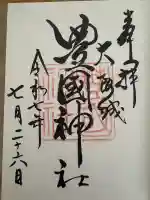 奉拝
大阪城
豊國神社
令和七年
七月二十六日